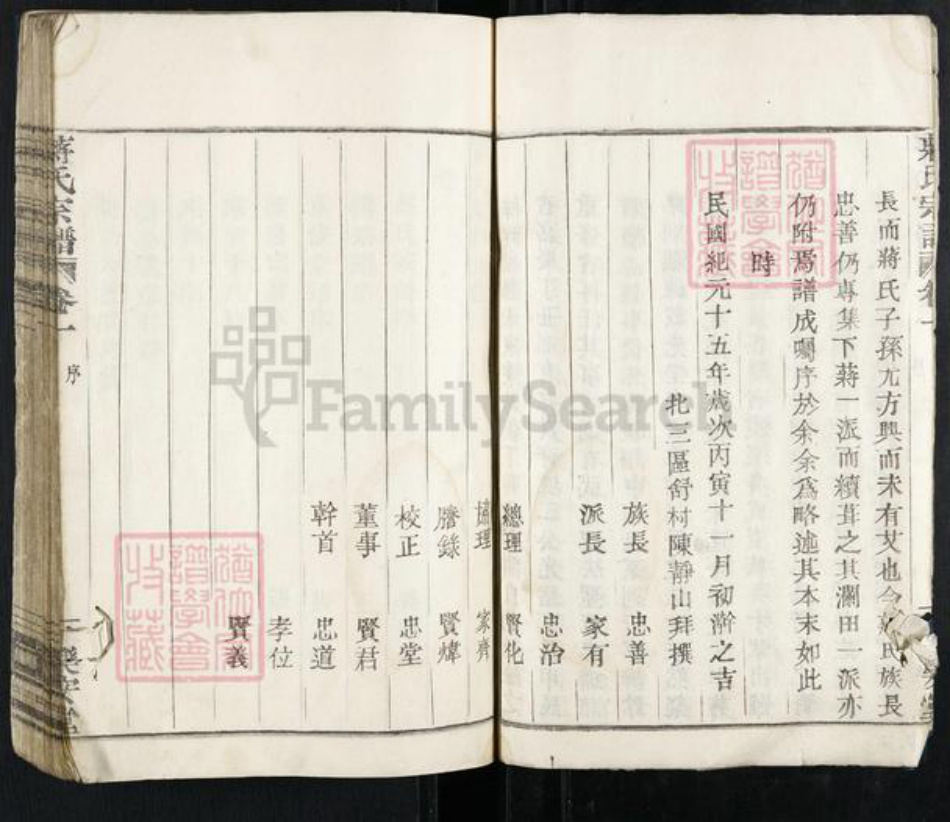 長而蔣氏子孫尤方興而未有艾也今蔣氏族長
忠善仍專集下蔣一派而續葺之其瀾田一派亦
仍附焉譜成囑序於余余爲略述其本末如此
時
民國紀元十五年歲次丙寅十一月初澣之吉
北三區舒村陳靜山拜撰
族長 忠善
派長 家有
忠治
總理 賢化
協理 家齊
謄錄 賢煒
校正 忠堂
董事 賢君
幹首 忠道
孝位
賢義
蔣氏宗譜 卷一
序
蔣氏宗譜 卷一
譜學會
收藏
譜學會
收藏
FamilySearch